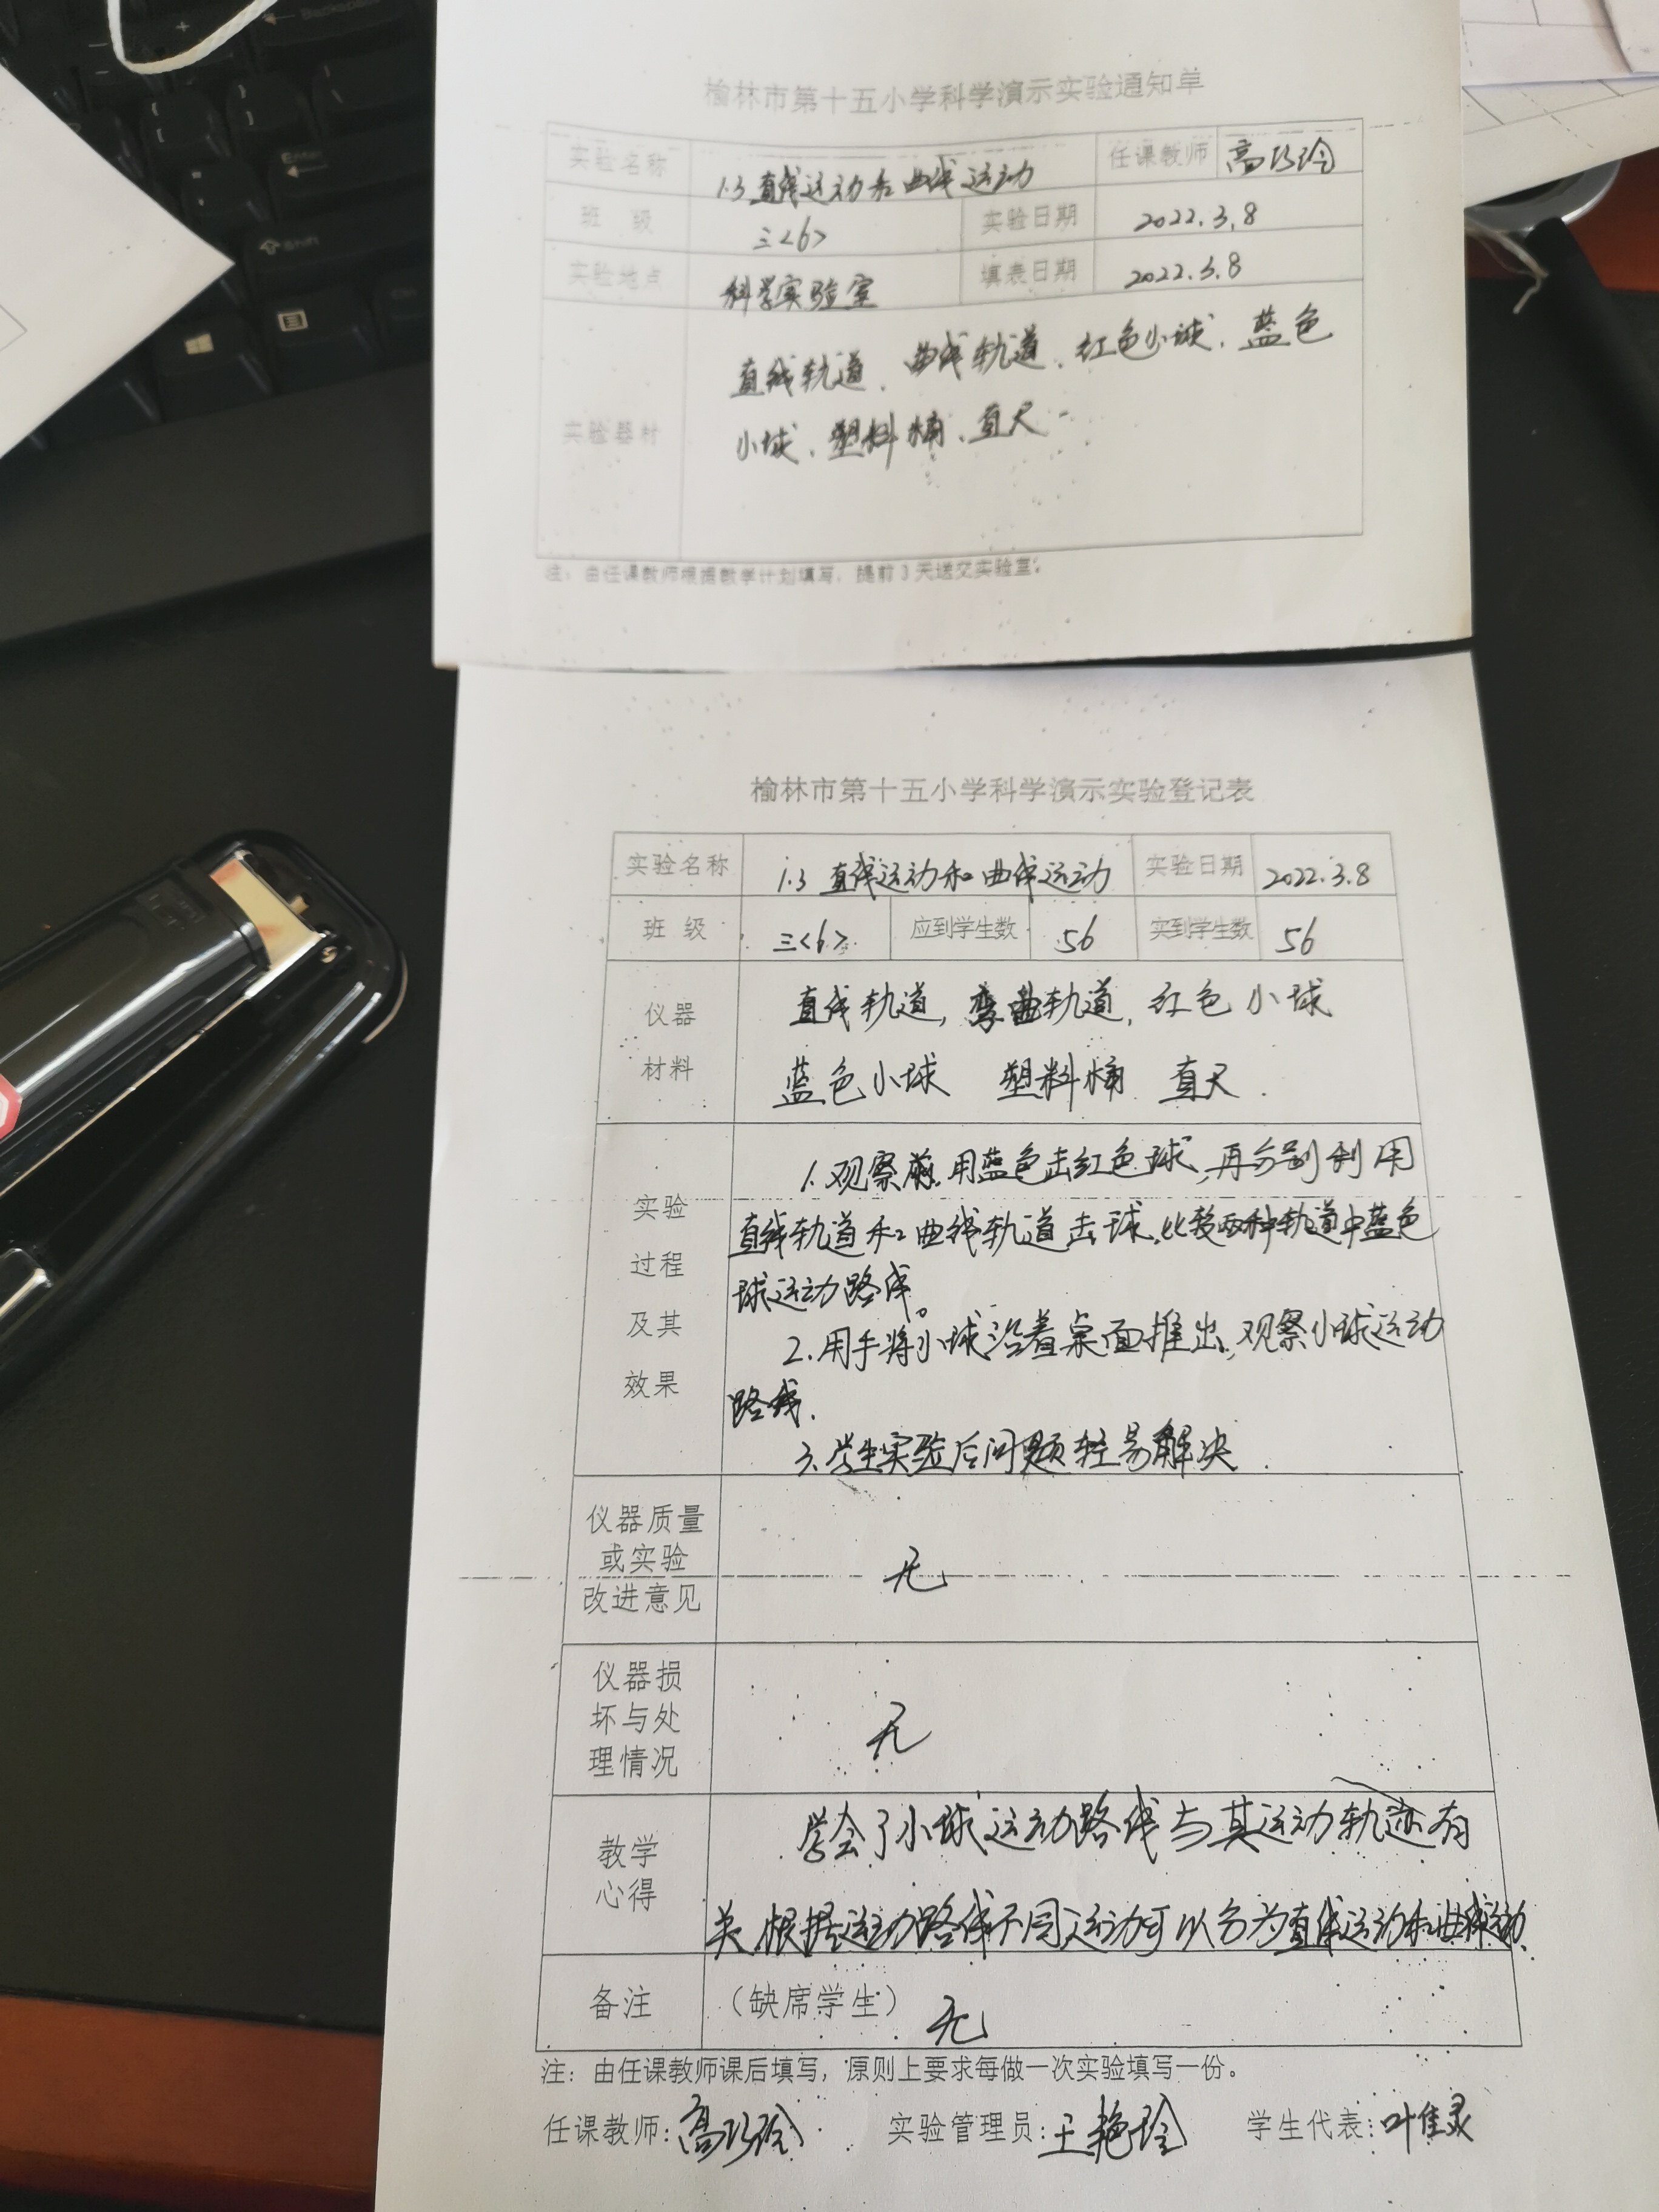 Backspace
Enter
Shift
榆林市第十五小学科学演示实验通知单
实验名称 1.3 直线运动和曲线运动 任课教师 高巧玲
班 级 三<6> 实验日期 2022.3.8
实验地点 科学实验室 填表日期 2022.3.8
直线轨道、曲线轨道、红色小球、蓝色
实验器材 小球、塑料桶、直尺
注：由任课教师根据教学计划填写，提前3天送交实验室。
榆林市第十五小学科学演示实验登记表
实验名称 1.3 直线运动和曲线运动 实验日期 2022.3.8
班 级 三<6> 应到学生数 56 实到学生数 56
仪器 直线轨道, 弯曲轨道, 红色小球
材料 蓝色小球 塑料桶 直尺.
1.观察前,用蓝色击红色球,再分别利用
实验 直线轨道和曲线轨道击球,比较两种轨道中蓝色
过程 球运动路线。
及其 2.用手将小球沿着桌面推出,观察小球运动
效果 路线.
3.学生实验后问题轻易解决.
仪器质量
或实验 无
改进意见
仪器损
坏与处 无
理情况
教学 学会了小球运动路线与其运动轨迹有
心得 关,根据运动路线不同运动可以分为直线运动和曲线运动.
备注 （缺席学生） 无
注：由任课教师课后填写，原则上要求每做一次实验填写一份。
任课教师:高巧玲 实验管理员:王艳玲 学生代表:叶佳灵